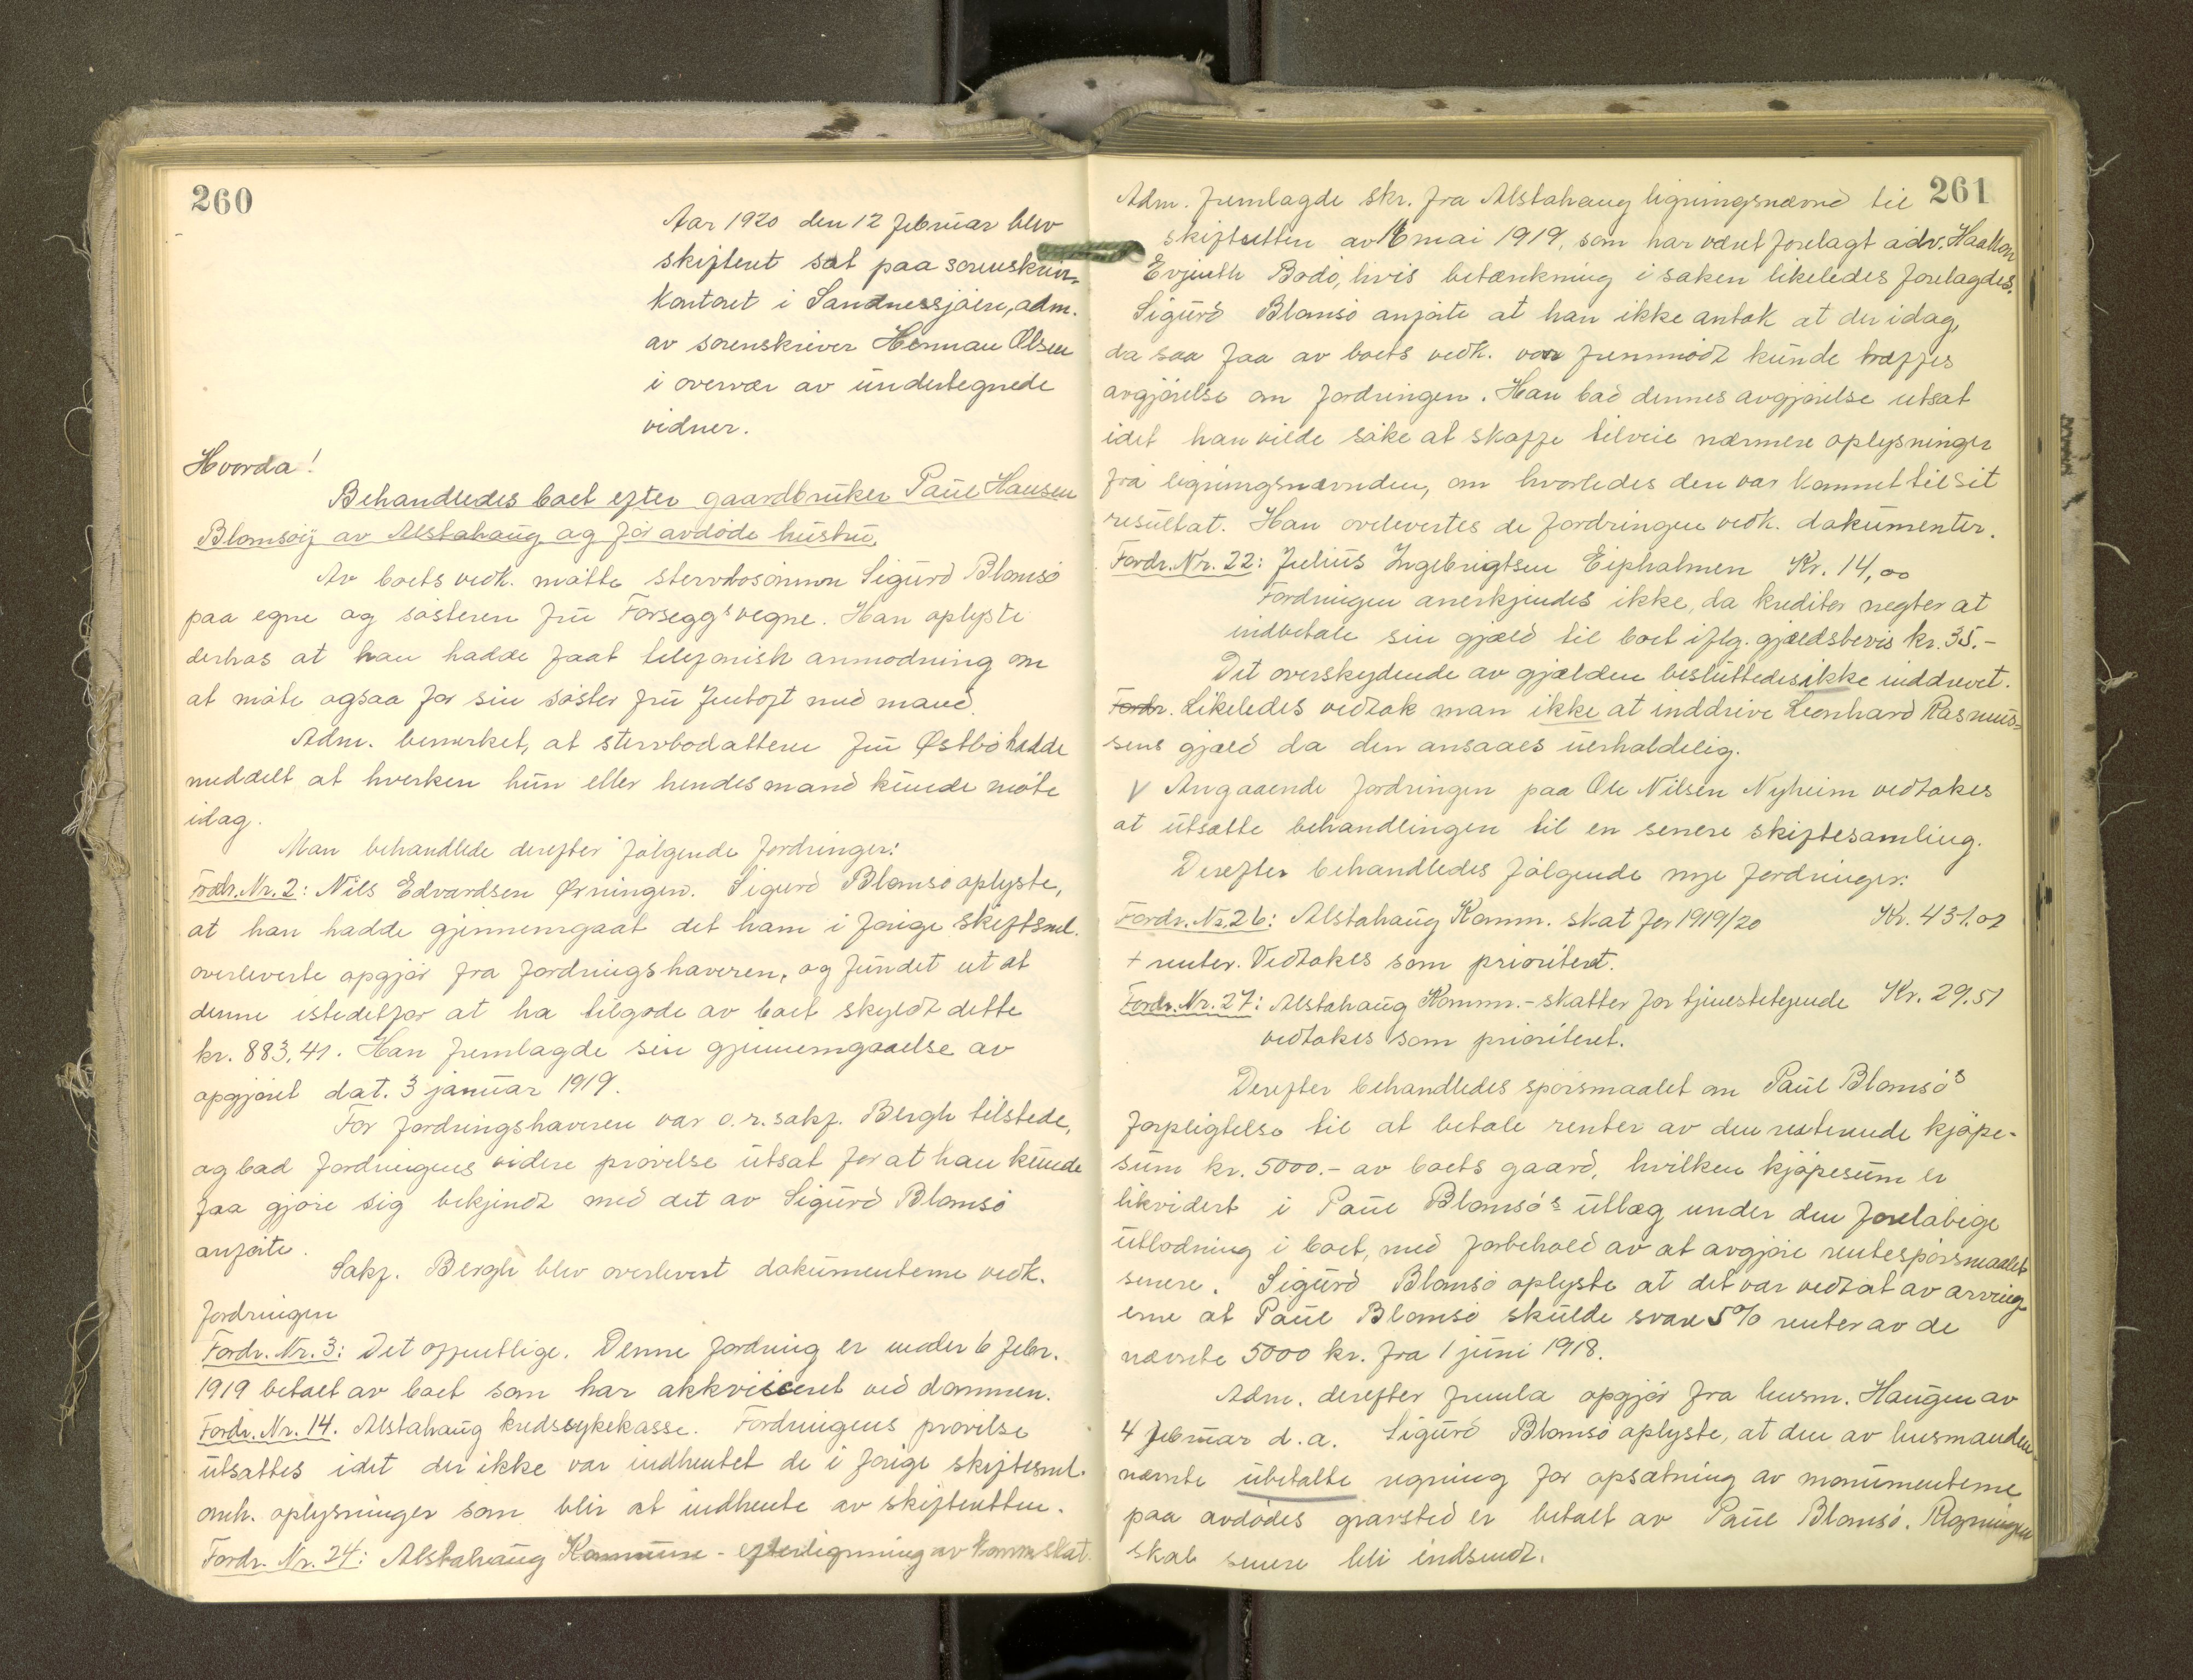 260
Aar 1920 den 12 februar blev
skifteret sat paa sorenskriver-
kontoret i Sandnessjøen, adm.
av sorenskriver Herman Olsen
i overvær av undertegnede
vidner.
Hvorda!
Behandledes boet efter gaardbruker Paul Hansen
Blomsøy av Alstahaug og før avdøde hustru.
Av boets vedk. møtte stervbosønnen Sigurd Blomsø
paa egne og søsteren fru Forseggs vegne. Han oplyste
derhos at han hadde faat telefonisk anmodning om
at møte ogsaa for sin søster fru Jentoft med mand.
Adm. bemerket, at stervbodatteren fru Østbø hadde
meddelt at hverken hun eller hendes mand kunde møte
idag.
Man behandlede derefter følgende fordringer:
Fordr. Nr. 2: Nils Edvardsen Ørningen. Sigurd Blomsø oplyste,
at han hadde gjennemgaat det ham i forige skiftesml.
overleverte opgjør fra fordringshaveren, og fundet ut at
denne istedetfor at ha tilgode av boet skyldt dette
kr. 883,41. Han fremlagde sin gjennemgaaelse av
opgjøret dat. 3 januar 1919.
For fordringshaveren var o.r.sakf. Bergh tilstede,
og bad fordringens videre prøvelse utsat for at han kunde
faa gjøre sig bekjendt med det av Sigurd Blomsø
anførte.
Sakf. Bergh blev overlevert dokumenterne vedk.
fordringen
Fordr. Nr. 3: Det offentlige. Denne fordring er under 6 febr.
1919 betalt av boet som har akkviesceret ved dommen.
Fordr. Nr. 14. Alstahaug kredssykekasse. Fordringens prøvelse
utsattes idet der ikke var indhentet de i forige skiftesml.
omh. oplysninger som blir at indhente av skifteretten.
Fordr. Nr. 24: Alstahaug Kommune - efterligning av kommskat.
261
Adm. fremlagde skr. fra Alstahaug ligningsnævnd til
skifteretten av 16 mai 1919, som har været forelagt adv. Haakon
Evjenth Bodø, hvis betænkning i saken likeledes forelagdes.
Sigurd Blomsø anførte at han ikke antok at der idag,
da saa faa av boets vedk. var fremmødt kunde træffes
avgjørelse om fordringen. Han bad dennes avgjørelse utsat
idet han vilde søke at skaffe tilveie nærmere oplysninger
fra ligningsnævnden, om hvorledes den var kommet til sit
resultat. Han overlevertes de fordringen vedk. dokumenter.
Fordr. Nr. 22: Julius Ingebrigtsen Eipholmen Kr. 14,00
Fordringen anerkjendes ikke, da kreditor negter at
indbetale sin gjæld til boet iflg. gjældsbevis kr. 35.-
Det overskydende av gjælden besluttedes ikke inddrevet.
Fordr. Likeledes vedtok man ikke at inddrive Leonhard Rasmus-
sens gjæld da den ansaaes uerholdelig.
V Angaaende fordringen paa Ole Nilsen Nyheim vedtokes
at utsætte behandlingen til en senere skiftesamling.
Derefter behandledes følgende nye fordringer:
Fordr. Nr. 26: Alstahaug Komm. skat for 1919/20 Kr. 431.02
+ renter. Vedtokes som prioritert.
Fordr. Nr. 27: Alstahaug Komm.- skatter for tjenestetyende Kr. 29.51
vedtokes som prioriteret.
Derefter behandledes spørsmaalet om Paul Blomsøs
forpligtelse til at betale renter av den resterende kjøpe-
sum kr. 5000.- av boets gaard, hvilken kjøpesum er
likvidert i Paul Blomsø's utlæg under den foreløbige
utlodning i boet, med forbehold av at avgjøre rentespørsmaalet
senere. Sigurd Blomsø oplyste at det var vedtat av arving-
erne at Paul Blomsø skulde svare 5% renter av de
nævnte 5000 kr. fra 1 juni 1918.
Adm. derefter fremla opgjør fra lensm. Haugen av
4 februar d.a. Sigurd Blomsø oplyste, at den av lensmanden
nævnte ubetalte regning for opsætning av monumenterne
paa avdødes gravsted er betalt av Paul Blomsø. Regningen
skal senere bli indsendt.